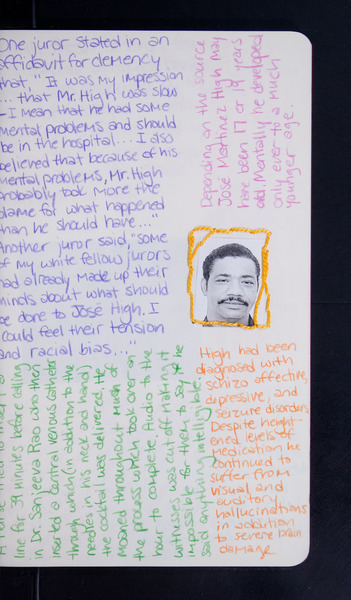 One juror stated in an
affidavit for clemency
that, "It was my impression
... that Mr. High was slow
- I mean that he had some
mental problems and should
be in the hospital... I also
believed that because of his
mental problems, Mr. High
probably took more the
blame for what happened
than he should have..."
Another juror said, "some
of my white fellow jurors
had already made up their
minds about what should
be done to José High. I
could feel their tension
and racial bias..."
Depending on the source
José Martinez High may
have been 17 or 19 years
old. Mentally he developed
only ever to a much
younger age.
High had been
diagnosed with
schizo affective,
depressive, and
seizure disorders.
Despite height-
ened levels of
medication he
continued to
suffer from
visual and
auditory
hallucinations
in addition
to severe brain
damage.
line for 39 minutes before calling
in Dr. Sanjeeva Rao who then
inserted a central venous catheter
through which (in addition to the
needles in his neck and hand)
the cocktail was delivered. He
moaned throughout much of
the process which took over an
hour to complete. Audio to the
witnesses was cut off making it
impossible for them to say if he
said anything intelligible.